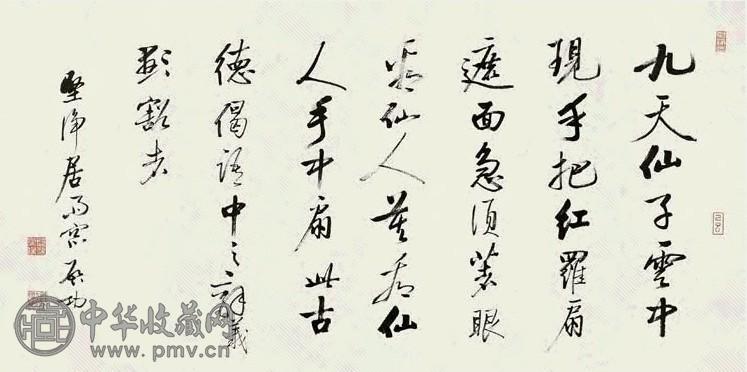 九天仙子雲中
現手把紅羅扇
遮面急須著眼
看仙人莫看仙
人手中扇此古
德偈語中之辭義
顯豁者
堅淨居雨窗啟功
中华收藏网
www.pmv.cn